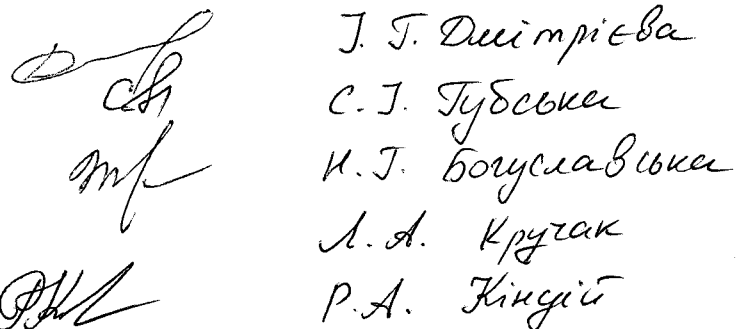 І. Г. Дмітрієва
С. І. Губська
Н. Г. Богуславська
Л. А. Кручак
Р. А. Кіндій